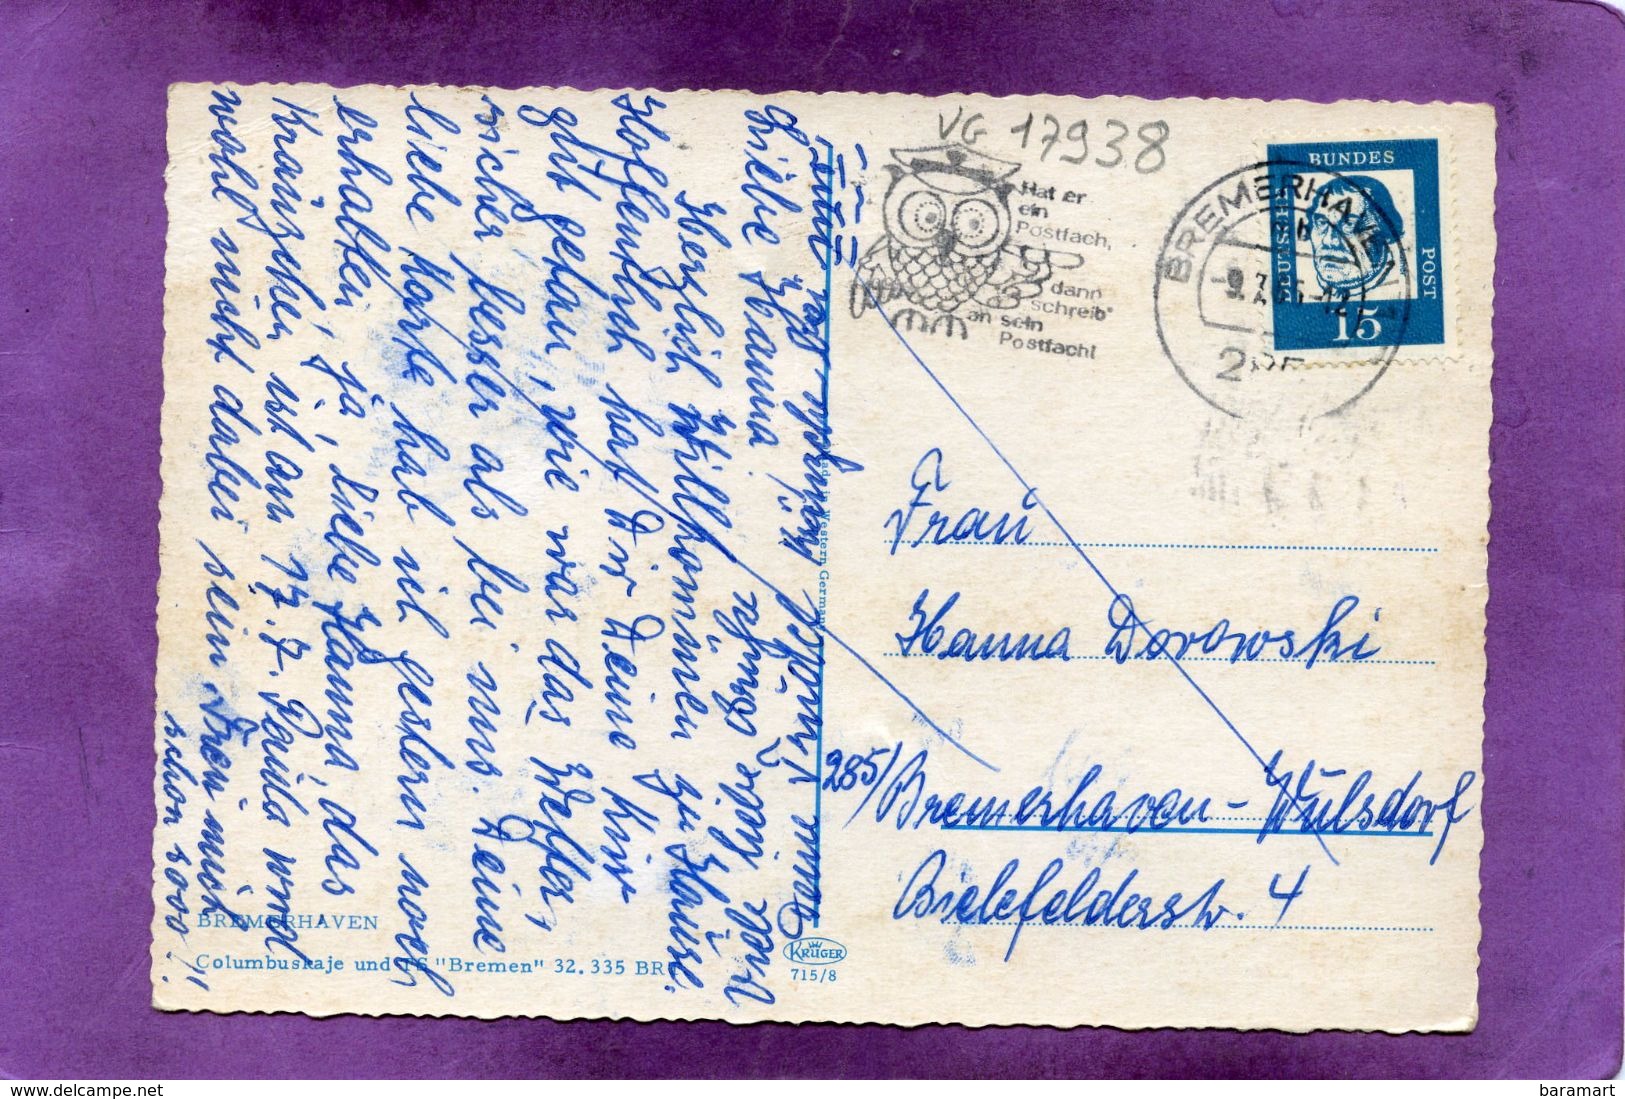 VG 17938
Hat er
ein
Postfach,
dann
schreib'
an sein
Postfach!
BREMERHAVEN 1
9.7.65-12
285
DEUTSCHE
BUNDES
POST
15
Liebe Hanna!
Herzlich Willkommen zu Hause.
Hoffentlich hat Dir Deine Kur
gut getan, wie war das Wetter,
sicher besser als bei uns. Deine
liebe Karte hab ich gestern noch
erhalten, ja liebe Hanna, das
Kränzchen ist am 17.7. Paula wird
wohl nicht dabei sein. Freu mich
schon sooo!!
Frau
Hanna Dorowski
285/Bremerhaven-Wulsdorf
Bielefelderstr. 4
in Western Germany
BREMERHAVEN
Columbuskaje und TS "Bremen" 32.335 BR
KRÜGER
715/8
baramart